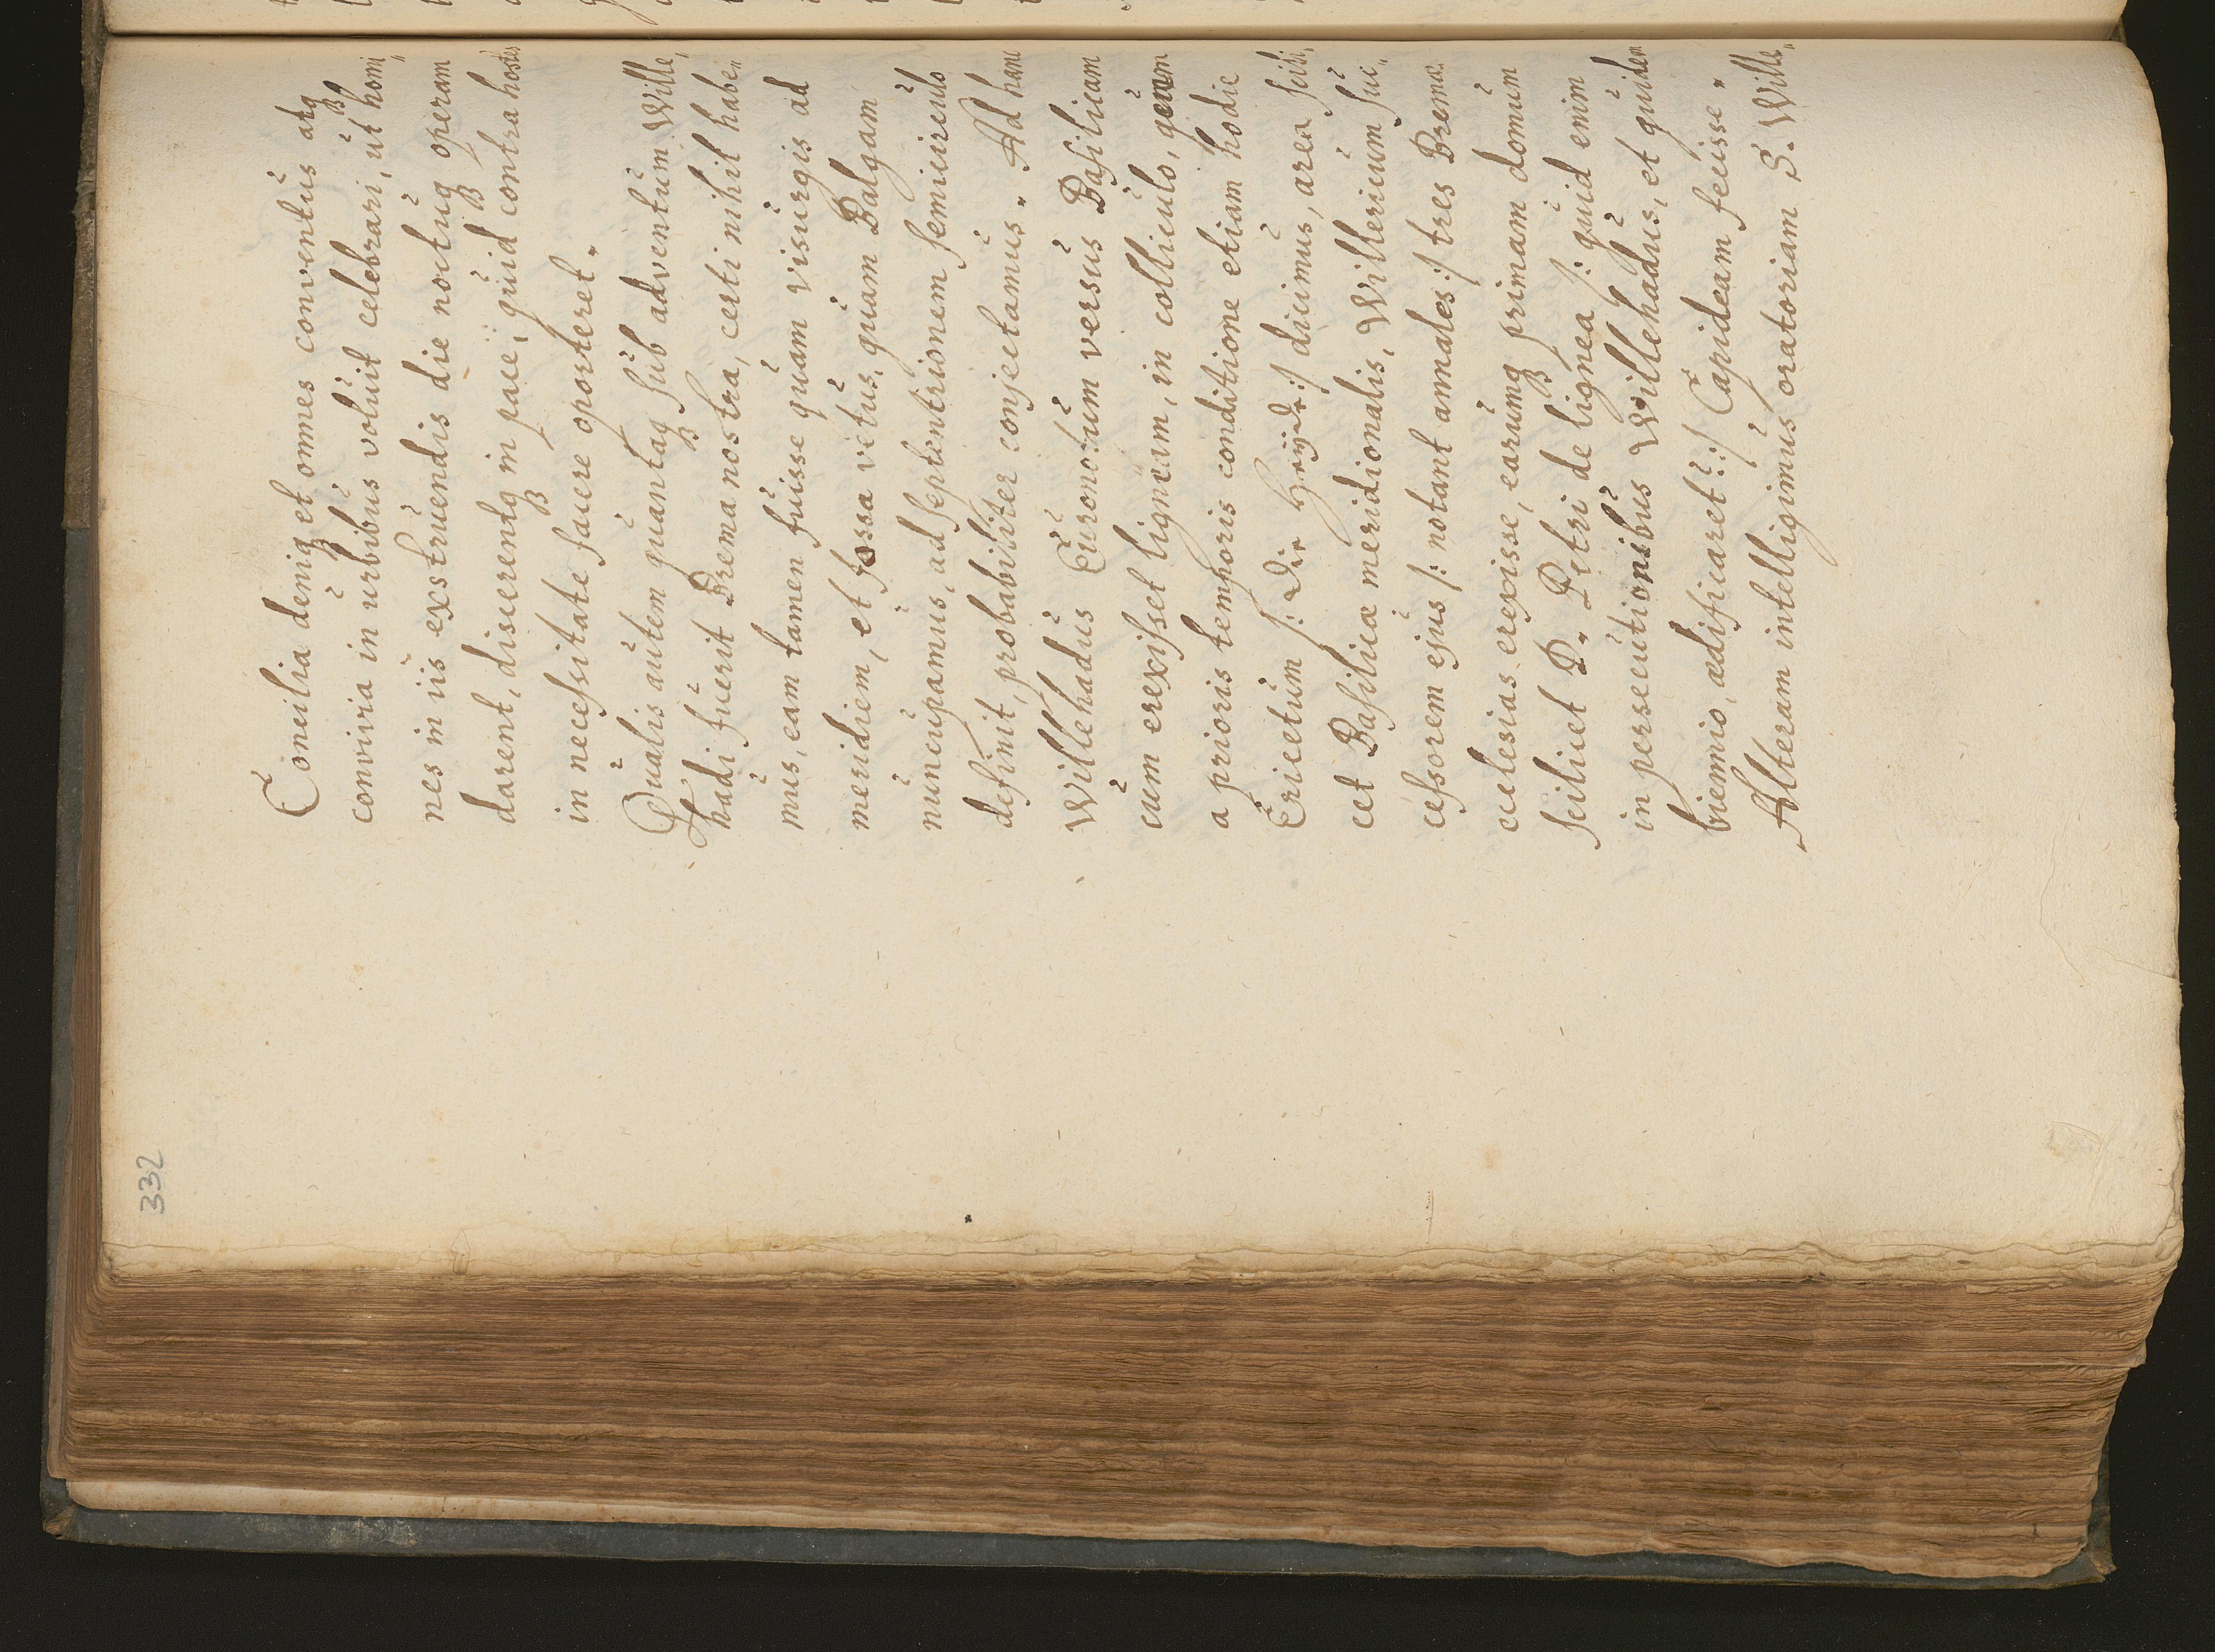 332
Concilia deniq et omnes conventus atq
convivia in urbibus voluit celebrari, ut homi„
nes in iis exstruendis die noctuq operam
darent, discerentq in pace, quid contra hostes
in necessitate facere oporteret.
Qualis autem quantaq sub adventum Wille„
hadi fuerit Brema nostra, certi nihil habe„
mus, eam tamen fuisse quam visurgis ad
meridiem, et fossa vetus, quam Balgam
nuncupamus, ad septentrionem semicirculo
definit, probabiliter conjectamus. Ad hanc
Willehadus Euronotum versus Basilicam
cum erexisset ligneam, in colliculo, quem
a prioris temporis conditione etiam hodie
Ericetum /: Die Heijde :/ dicimus, area scili„
cet Basilicæ meridionalis, Willericum suc„
cessorem ejus /: notant annales :/ tres Bremæ
ecclesias erexisse, earumq primam domum
scilicet D. Petri de lignea /: quid enim
in persecutionibus Willehadus, et quidem
biennio, ædificaret? :/ Lapideam fecisse.
Alteram intelligimus oratoriam S. Wille„